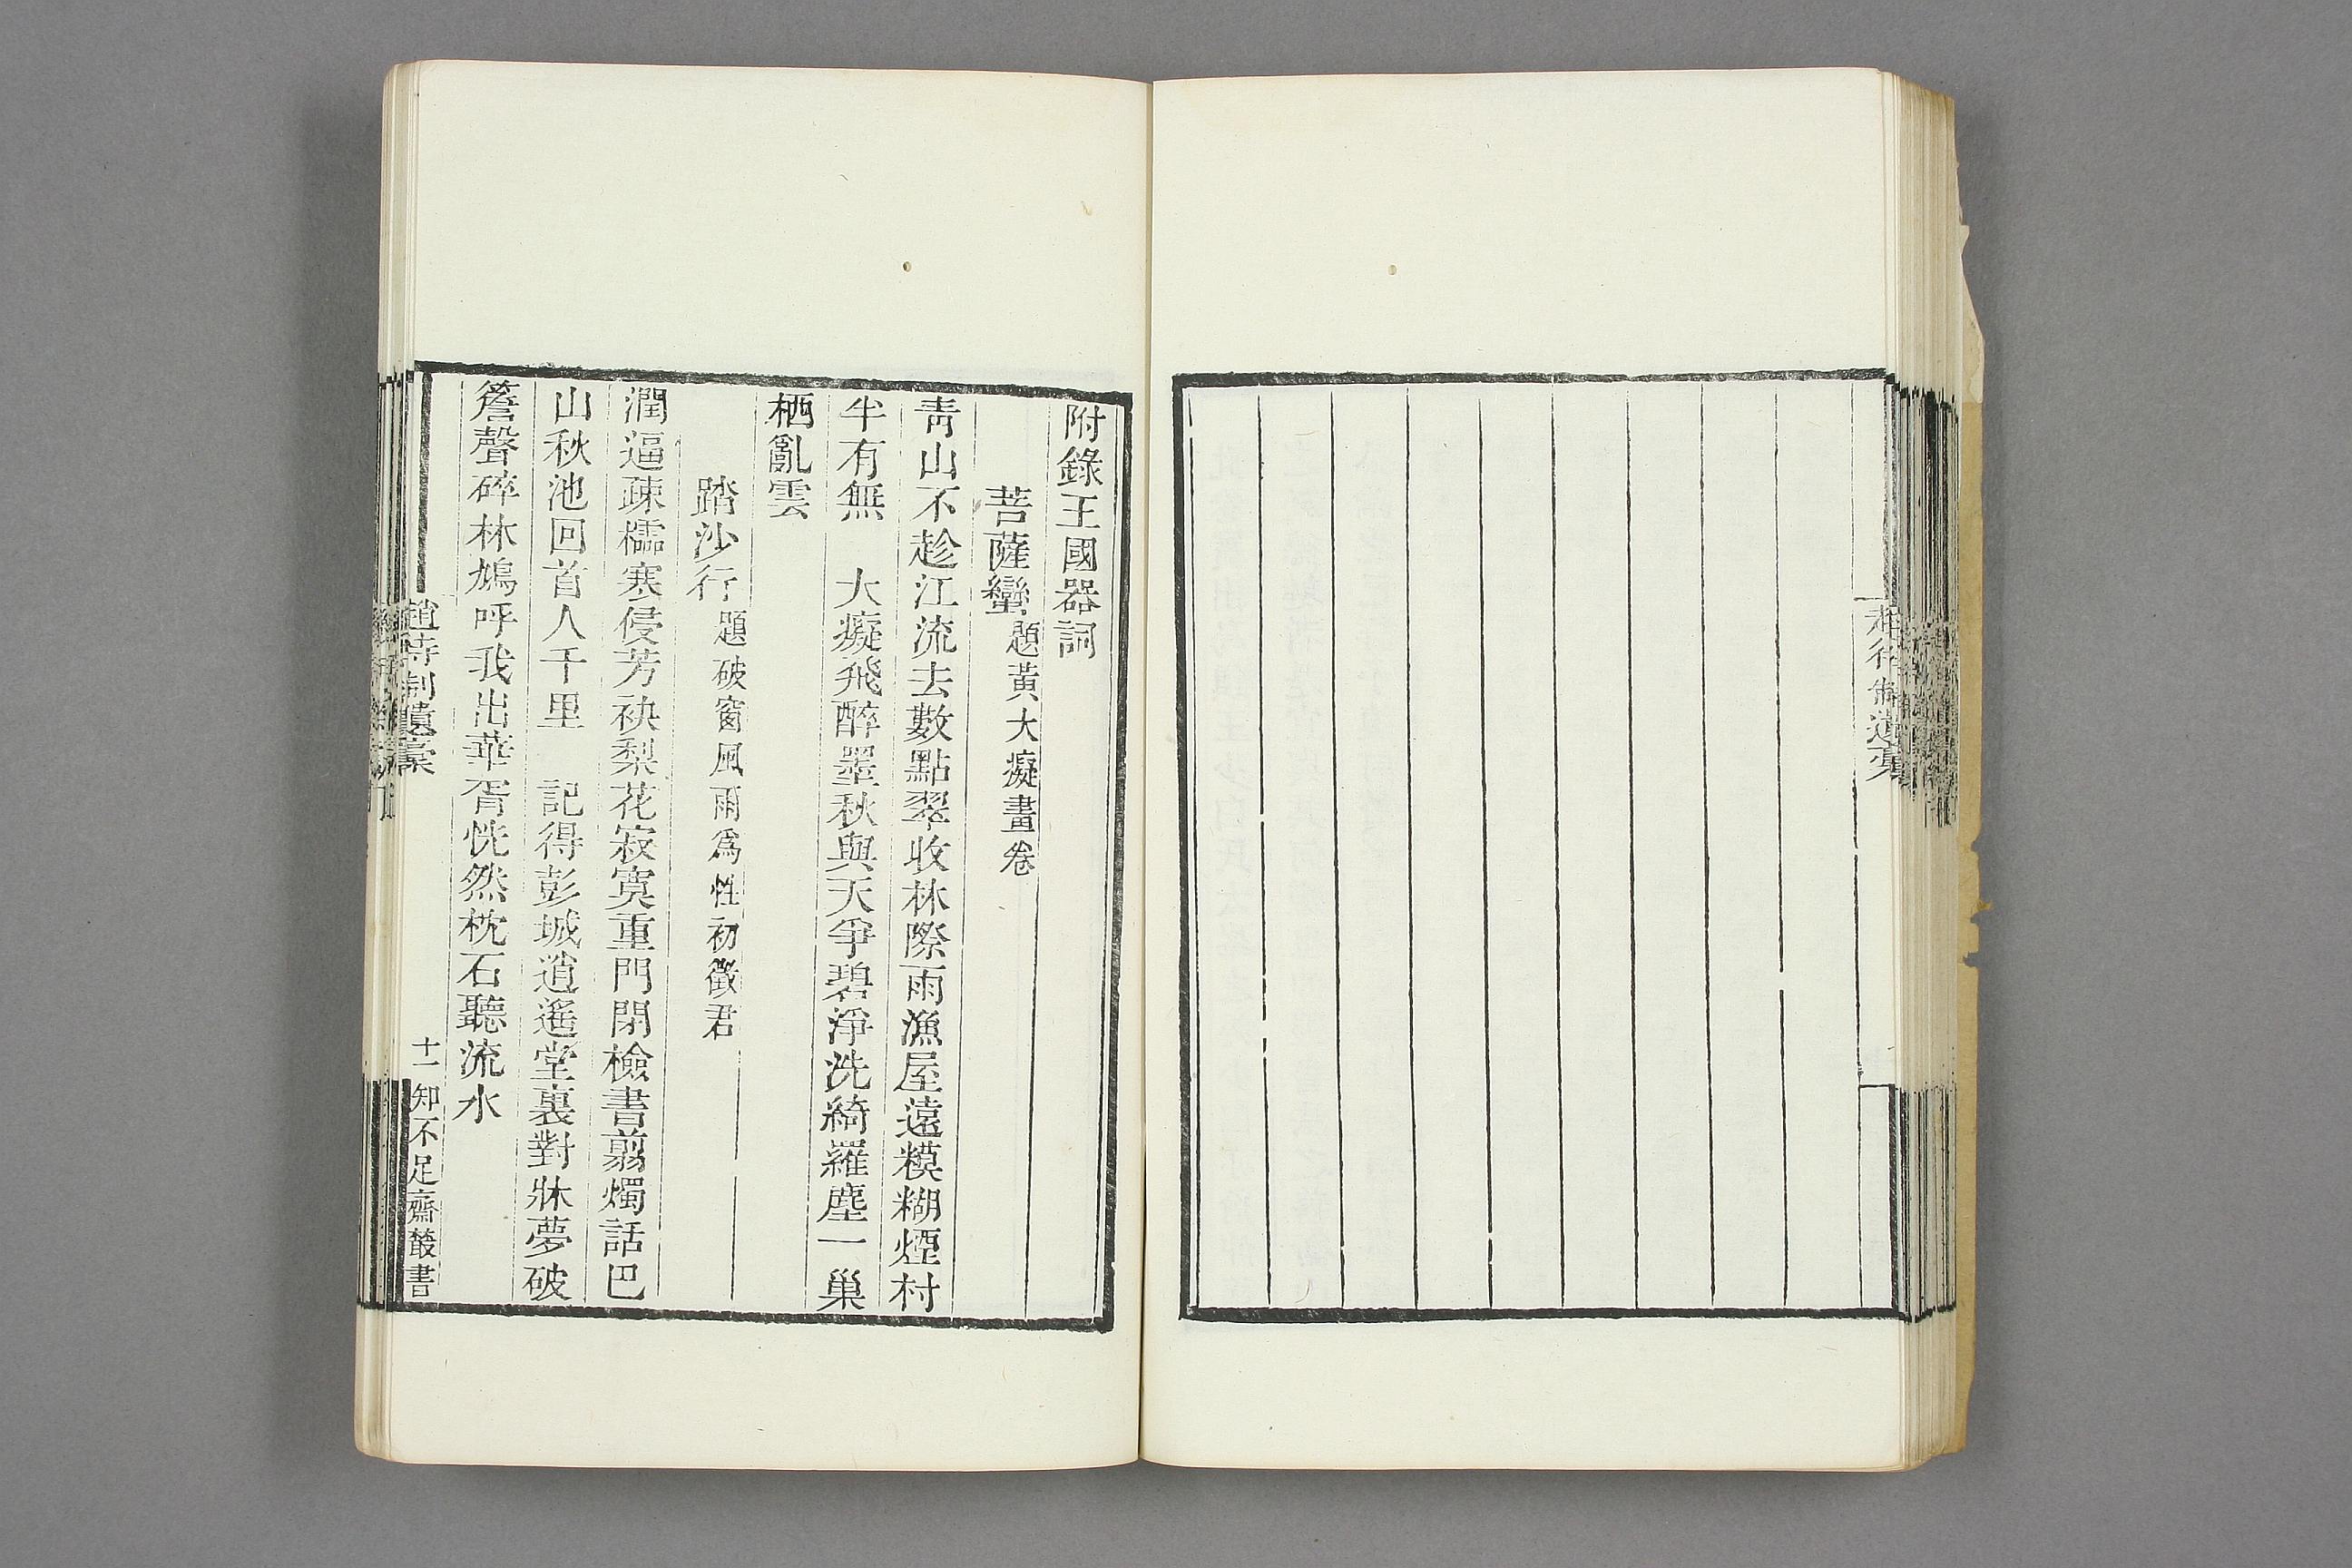 趙待制遺稾
附錄王國器詞
菩薩蠻 題黃大癡畫卷
青山不趁江流去數點翠收林際雨漁屋遠糢糊煙村
半有無　大癡飛醉墨秋與天爭碧淨洗綺羅塵一巢
栖亂雲
踏沙行 題破窗風雨爲性初徵君
潤逼疎櫺寒侵芳袂梨花寂寞重門閉檢書翦燭話巴
山秋池回首人千里　記得彭城逍遙堂裏對牀夢破
簷聲碎林鳩呼我出華胥恍然枕石聽流水
趙待制遺稾　十一　知不足齋叢書